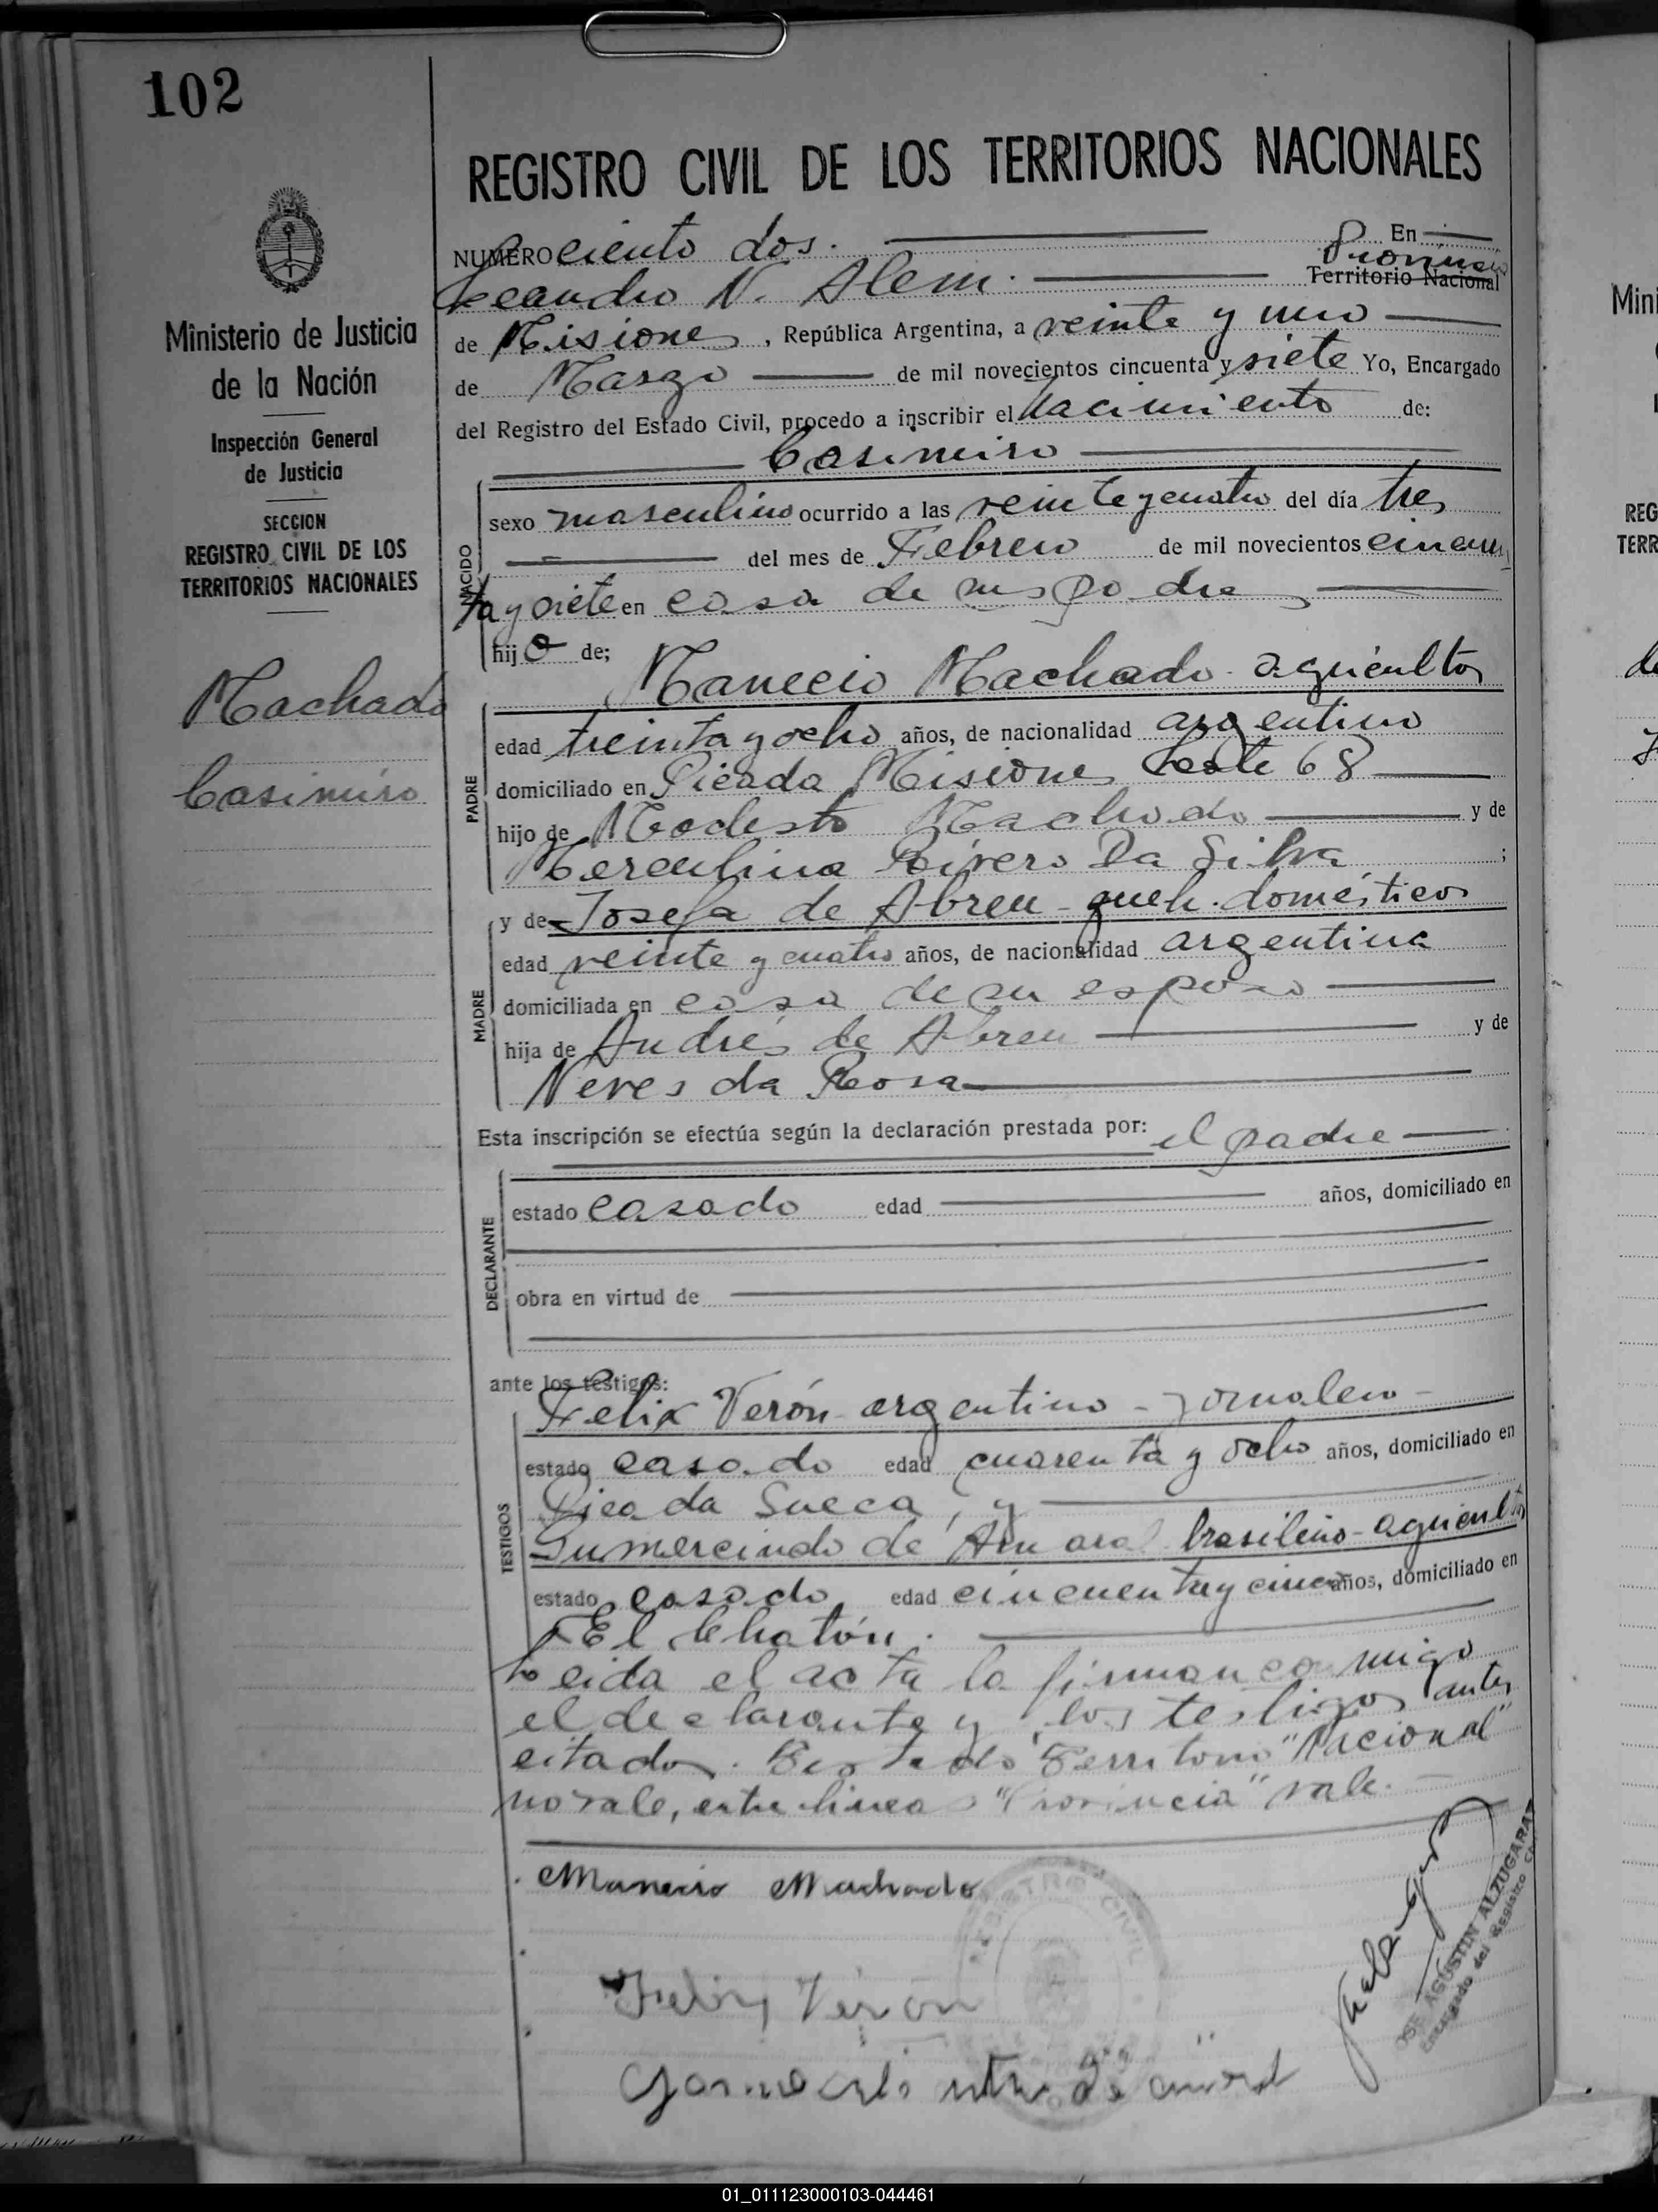 102
REGISTRO CIVIL DE LOS TERRITORIOS NACIONALES
Ministerio de Justicia
de la Nación
Inspección General
de Justicia
SECCION
REGISTRO CIVIL DE LOS
TERRITORIOS NACIONALES
Machado
Casimiro
NUMERO ciento dos. En
Provincia
Leandro N. Alem. Territorio Nacional
de Misiones, República Argentina, a veinte y uno
de Marzo de mil novecientos cincuenta y siete Yo, Encargado
del Registro del Estado Civil, procedo a inscribir el Nacimiento de:
Casimiro
NACIDO
sexo masculino ocurrido a las veinte y cuatro del día tres
del mes de Febrero de mil novecientos cincuen
ta y siete en casa de sus padres
hijo de;
Manecio Machado - agricultor
PADRE
edad treinta y ocho años, de nacionalidad argentino
domiciliado en Picada Misiones Lote 68
hijo de Modesto Machado y de
Herculina Rivero Da Silva ;
y de Josefa de Abreu - queh. domésticos
MADRE
edad veinte y cuatro años, de nacionalidad argentina
domiciliada en casa de su esposo
hija de Andrés de Abreu y de
Neves da Rosa
Esta inscripción se efectúa según la declaración prestada por: el padre
DECLARANTE
estado casado edad años, domiciliado en
obra en virtud de
ante los testigos:
TESTIGOS
Felix Verón - argentino - jornalero -
estado casado edad cuarenta y ocho años, domiciliado en
Picada Sueca, y
Gumercindo de Amaral brasileño - agricultor
estado casado edad cincuenta y cinco años, domiciliado en
El Chatón.
Leida el acta la firman conmigo
el declarante y los testigos antes
citados. Testado "Territorio Nacional"
no vale, entre lineas "Provincia" vale.
Manecio Machado
Felix Verón
REGISTRO CIVIL
JOSE AGUSTIN ALZUGARAY
Encargado del Registro
01_011123000103-044461